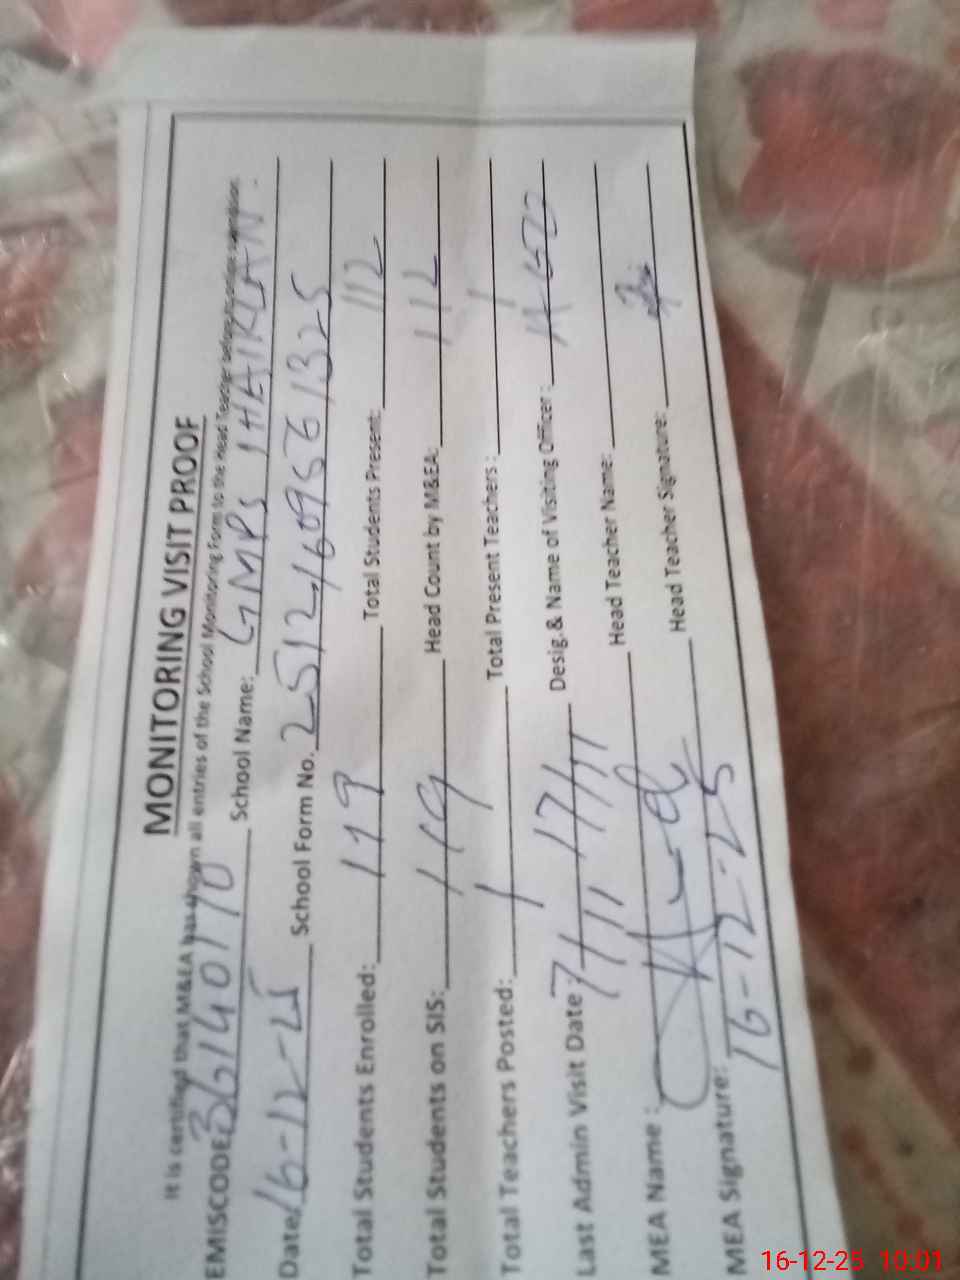 MONITORING VISIT PROOF
It is certified that M&EA has shown all entries of the School Monitoring Form to the Head Teacher before
EMISCODE: School Name: GMPS
Date: 16-12-25 School Form No. 2512,1609561325
Total Students Enrolled: 119 Total Students Present: 112
Total Students on SIS: 119 Head Count by M&EA: 112
Total Teachers Posted: 1 Total Present Teachers: 1
Last Admin Visit Date: Desig.& Name of Visiting Officer:
MEA Name: Head Teacher Name:
MEA Signature: 16-12-25 Head Teacher Signature:
16-12-25 10:01